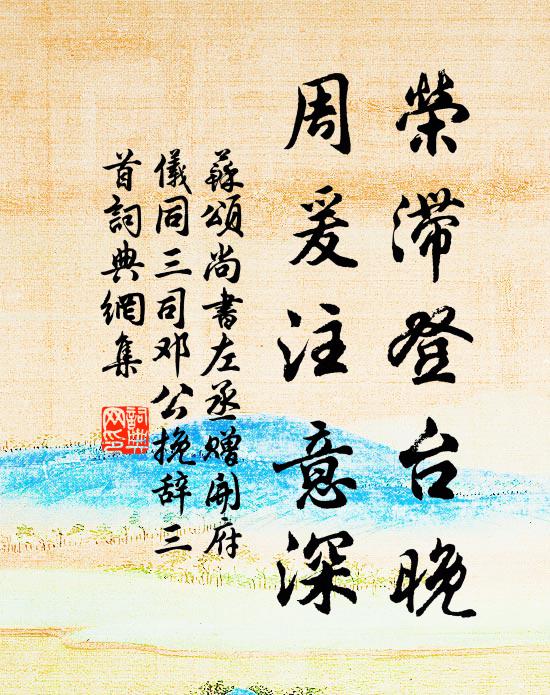 榮滞登台晚
周爰注意深
蘇頌尚書左丞赠開府
儀同三司邓公挽辞三
首詞典網集